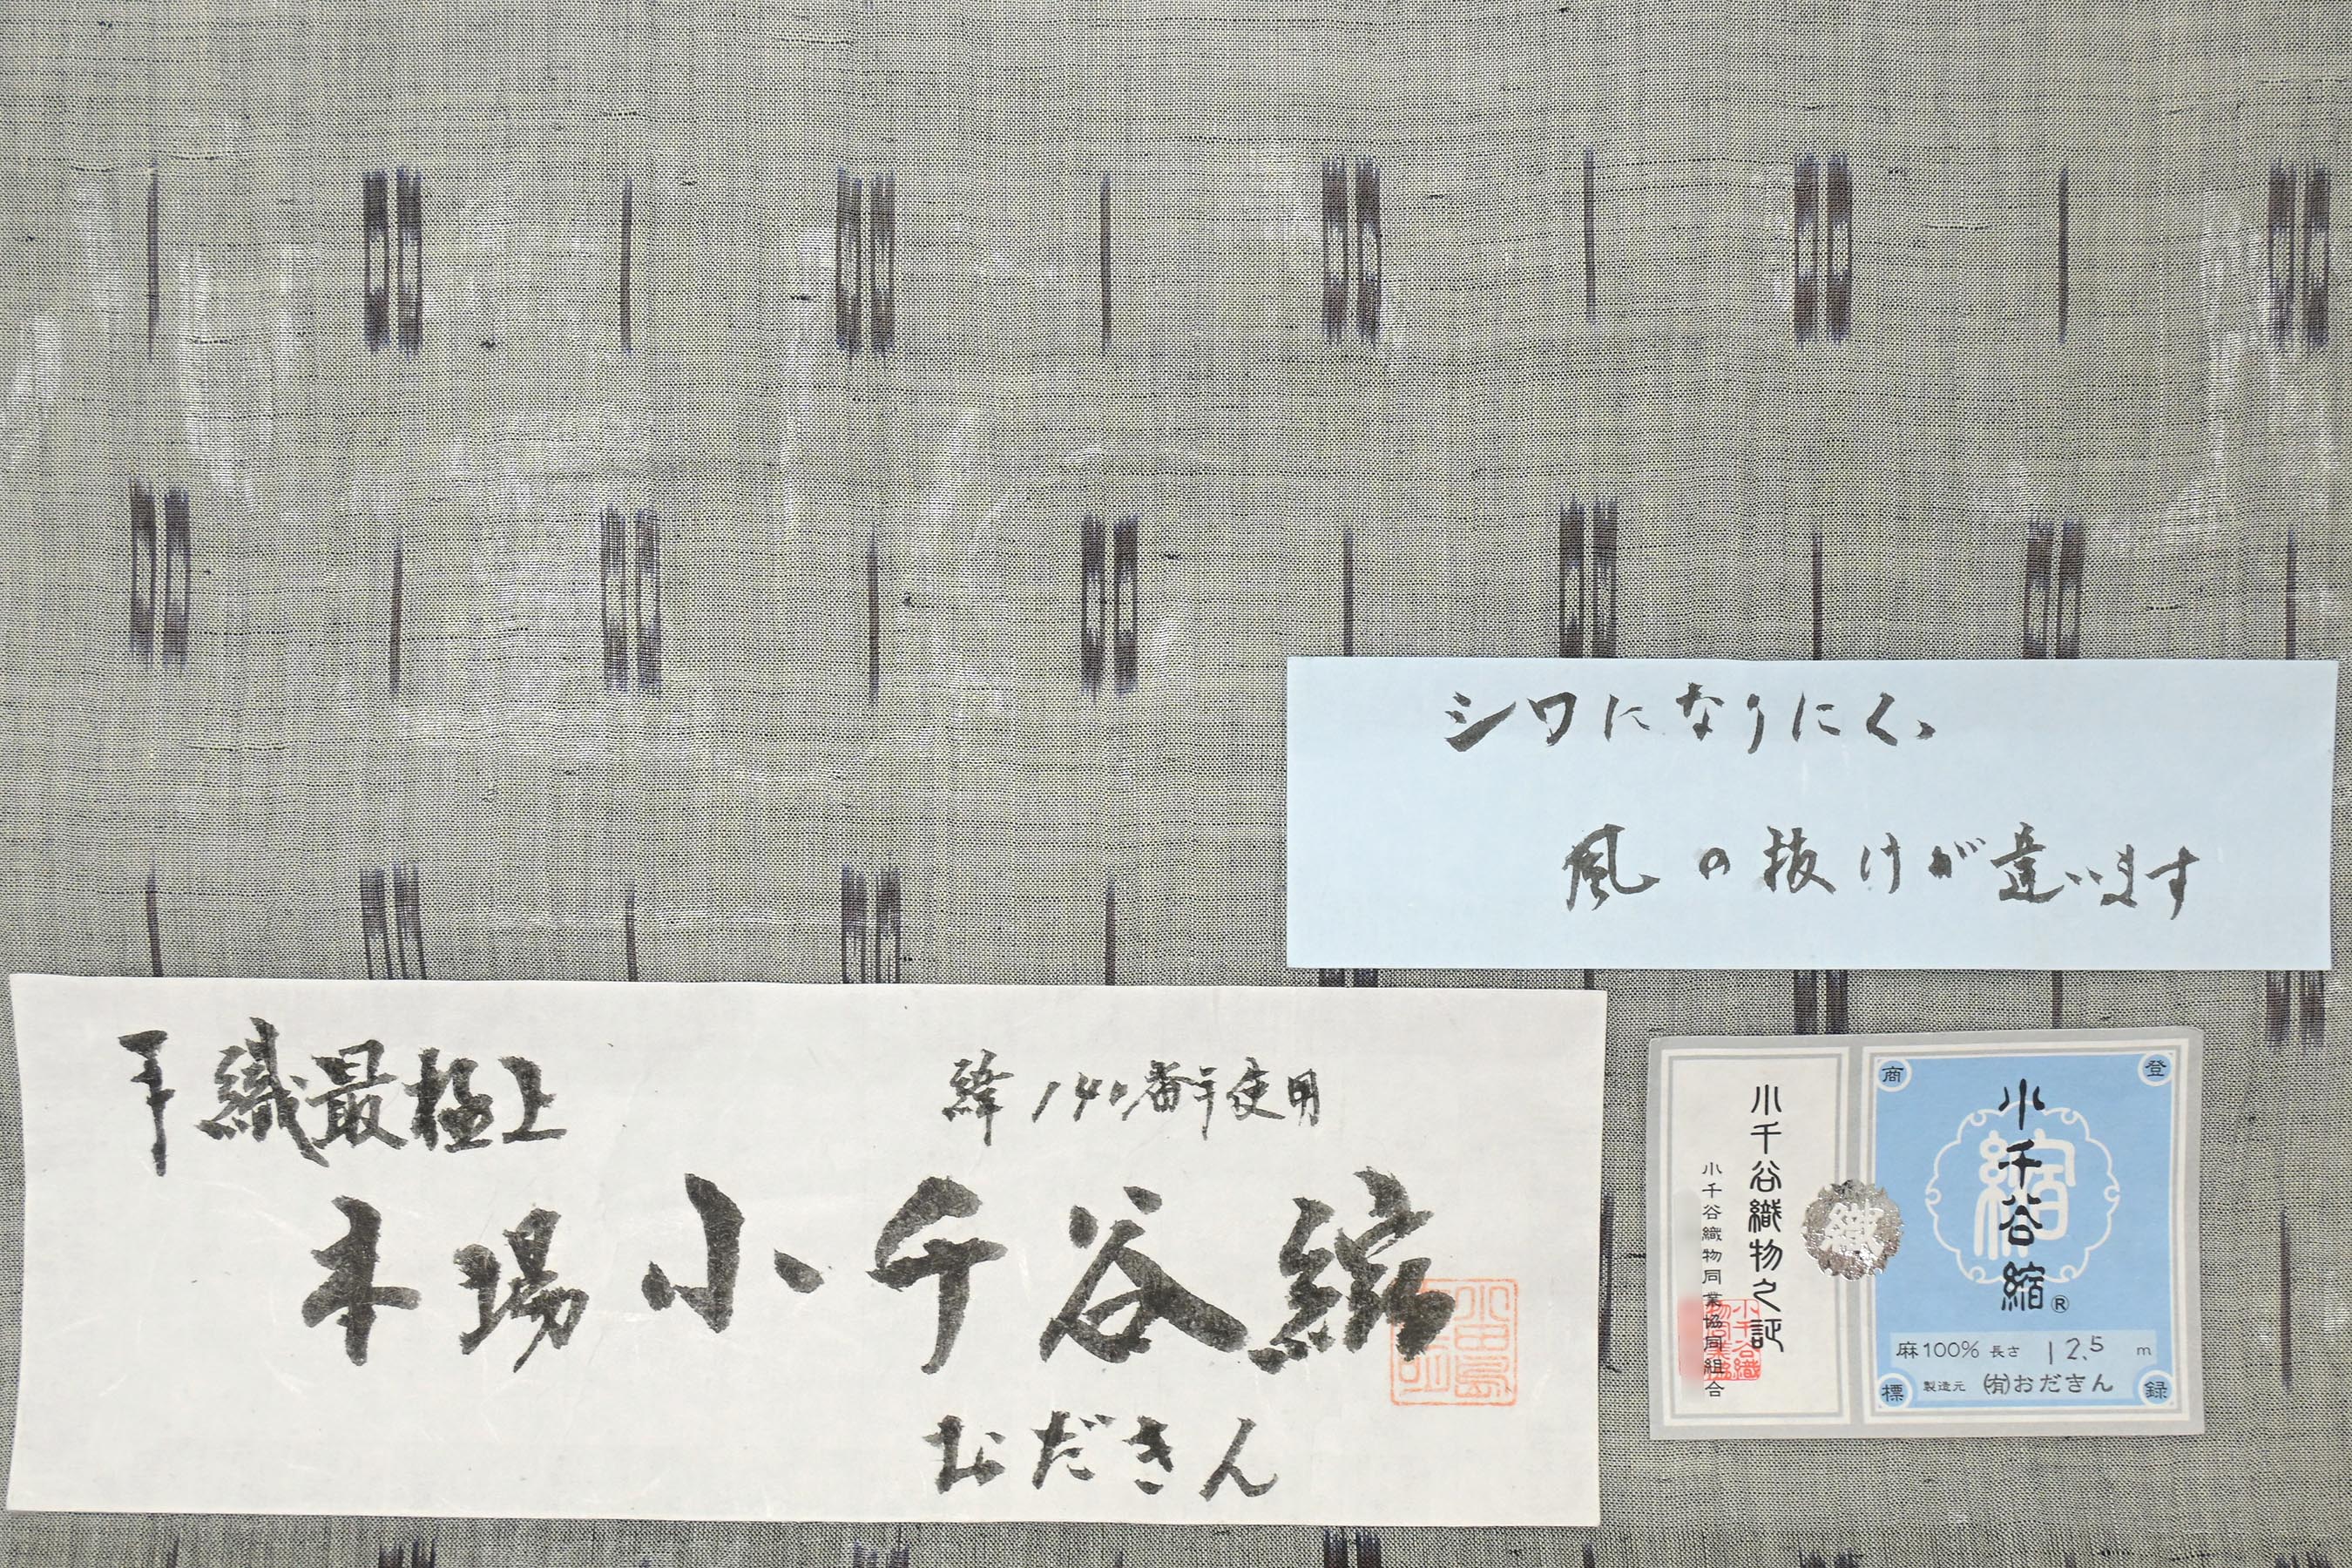 シワになりにく、
風の抜けが違います
手織最極上
緯140番手使用
本場小千谷縮
おだきん
小千谷織物之証
小千谷織物同業協同組合
織
登録商標
縮
小千谷縮®
麻100% 長さ 12.5 m
製造元 (有)おだきん